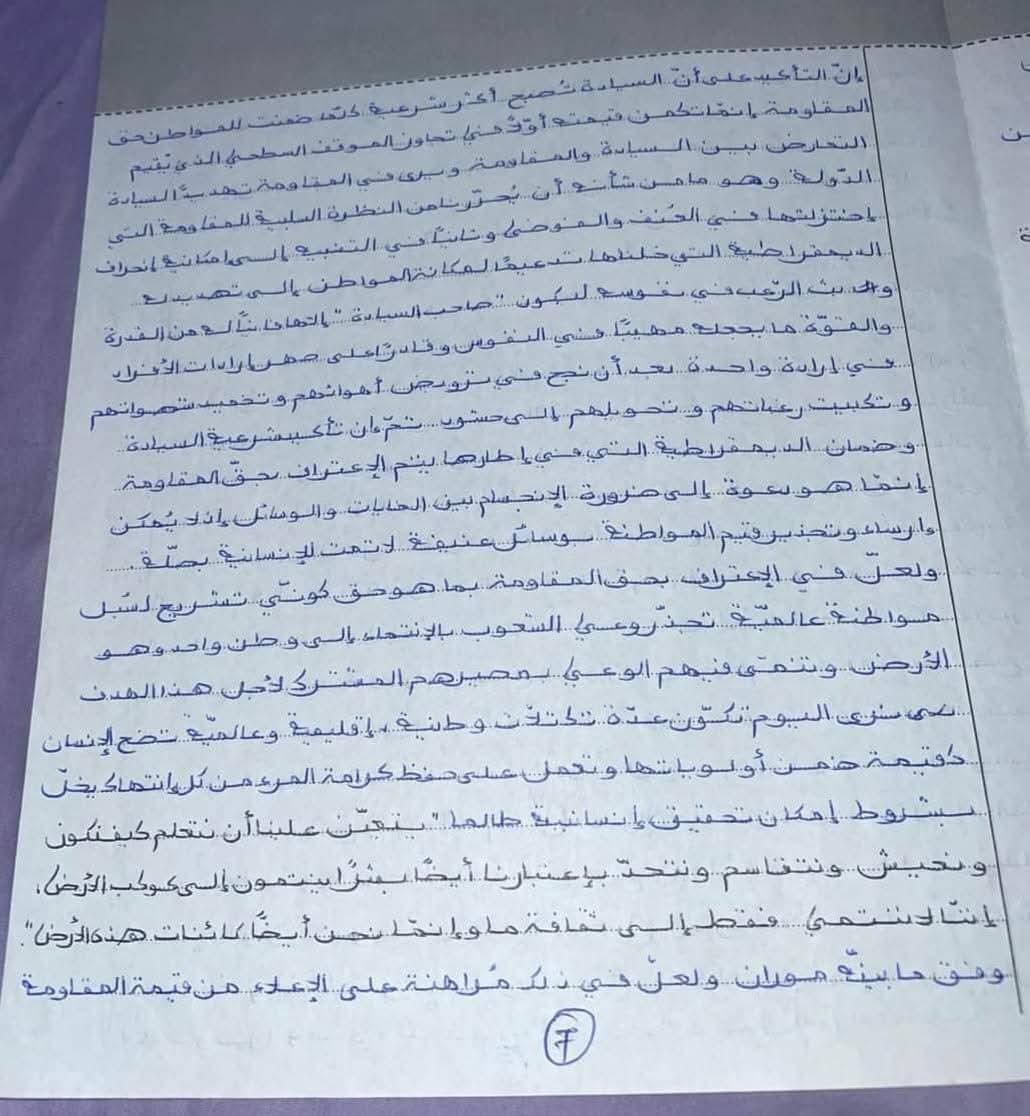 إنّ التأكيد على أنّ السيادة تُصبح أكثر شرعية كلّما ضمنت للمواطن حق
المقاومة إنما تكمن قيمته أوّلا في تجاوز الموقف السطحي الذي يُقيم
التعارض بين السيادة والمقاومة ويرى في المقاومة تهديدًا لسيادة
الدّولة وهو ما من شأنه أن يُحرّرنا من النظرة السلبية للمقاومة التي
إختزلتها في العُنف والفوضى وثانيًا في التنبيه إلى إمكانية إنحراف
الديمقراطية التي خلناها تدعيمًا لمكانة المواطن إلى تهديد له
الرّعب في نفوسه ليكون "صاحب السيادة" إلتهافا نيًّا له من القدرة
والقوّة ما يجعله مهيبًا في النفوس وقادرًا على صهر إرادات الأفراد
في إرادة واحدة بعد أن نجح في ترويض أهوائهم وتخميد شهواتهم
وتكبيت رغباتهم وتحويلهم إلى حشود. ثمّ إن تأكيد شرعية السيادة
وضمان الديمقراطية التي في إطارها يتم الإعتراف بحقّ المقاومة
إنمّا هو دعوة إلى ضرورة الإنسجام بين الغايات والوسائل إذ لا يُمكن
إرساء وتجذير قيم المواطنة بوسائل عنيفة لا تمت للإنسانية بصلّة.
ولعلّ في الإعتراف بحق المقاومة بما هو حق كونيّ تشريع لسُبل
مواطنة عالميّة تجذّر وعي الشعوب بالإنتماء إلى وطن واحد وهو
الأرض وتنمّى فيهم الوعي بمصيرهم المشترك لأجل هذا الهدف
نرى اليوم تكوّن عدّة تكتلات وطنية، إقليمية وعالميّة تضع الإنسان
كقيمة ضمن أولوياتها وتعمل على حفظ كرامة المرء من كل إنتهاك يخلّ
بشروط إمكان تحقيق إنسانية طالما "يتعيّن علينا أن نتعلم كيف نكون
ونعيش ونتقاسم ونتحدّ بإعتبارنا أيضًا بشرًا ينتمون إلى كوكب الأرض،
إننّا لا ننتمي فقط إلى ثقافة ما وإنمّا نحن أيضًا كائنات هذه الأرض".
وفق ما بينّه موران ولعلّ في ذلك مُراهنة على الإعلاء من قيمة المقاومة
7